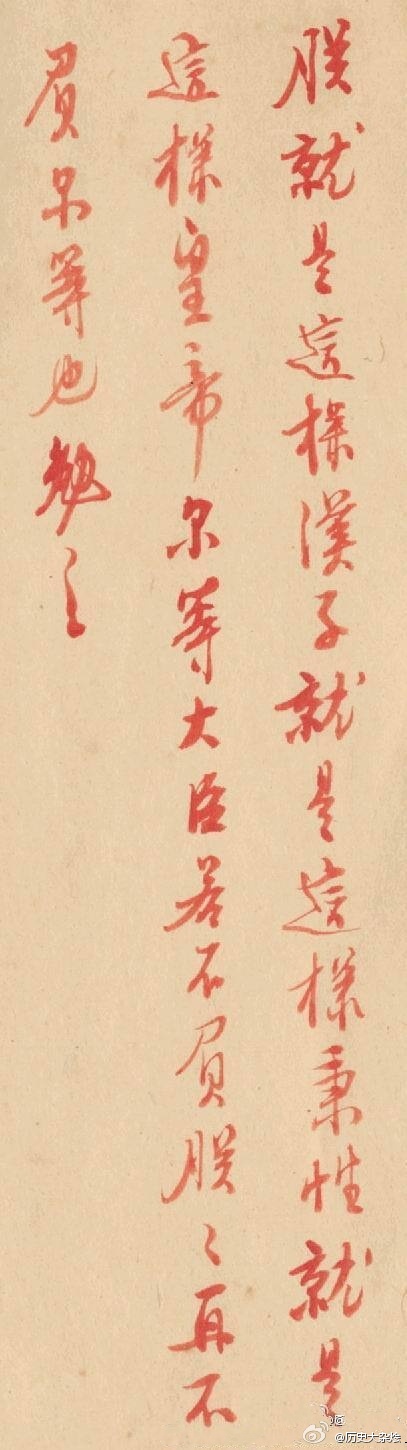 朕就是這樣漢子就是這樣秉性就是
這樣皇帝尔等大臣若不負朕〻再不
負尔等也勉之
@历史大杂烩